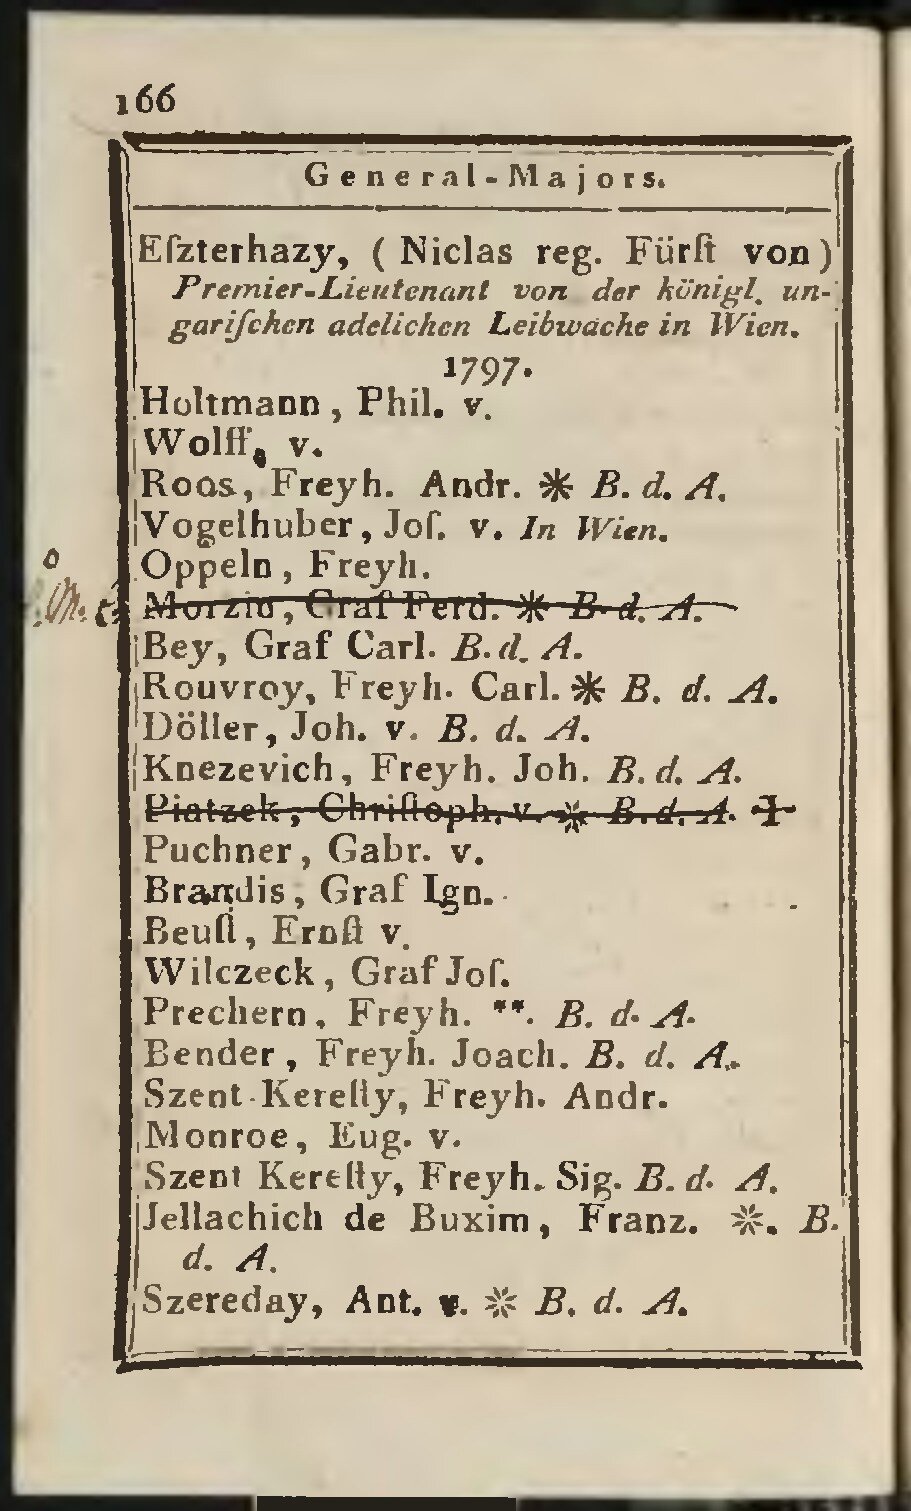 166
General-Majors.
Eſzterhazy, ( Niclas reg. Fürſt von)
Premier-Lieutenant von der königl. un-
gariſchen adelichen Leibwache in Wien.
1797.
Holtmann, Phil. v.
Wolff, v.
Roos, Freyh. Andr. * B. d. A.
Vogelhuber, Joſ. v. In Wien.
Oppeln, Freyh.
Morzin, Graf Ferd. * B. d. A.
Bey, Graf Carl. B. d. A.
Rouvroy, Freyh. Carl. * B. d. A.
Döller, Joh. v. B. d. A.
Knezevich, Freyh. Joh. B. d. A.
Piatzek, Chriſtoph. v. * B. d. A. +
Puchner, Gabr. v.
Brandis, Graf Ign.
Beuſt, Ernſt v.
Wilczeck, Graf Joſ.
Prechern, Freyh. **. B. d. A.
Bender, Freyh. Joach. B. d. A.
Szent-Kereſty, Freyh. Andr.
Monroe, Eug. v.
Szent Kereſty, Freyh. Sig. B. d. A.
Jellachich de Buxim, Franz. *. B.
d. A.
Szereday, Ant. v. * B. d. A.